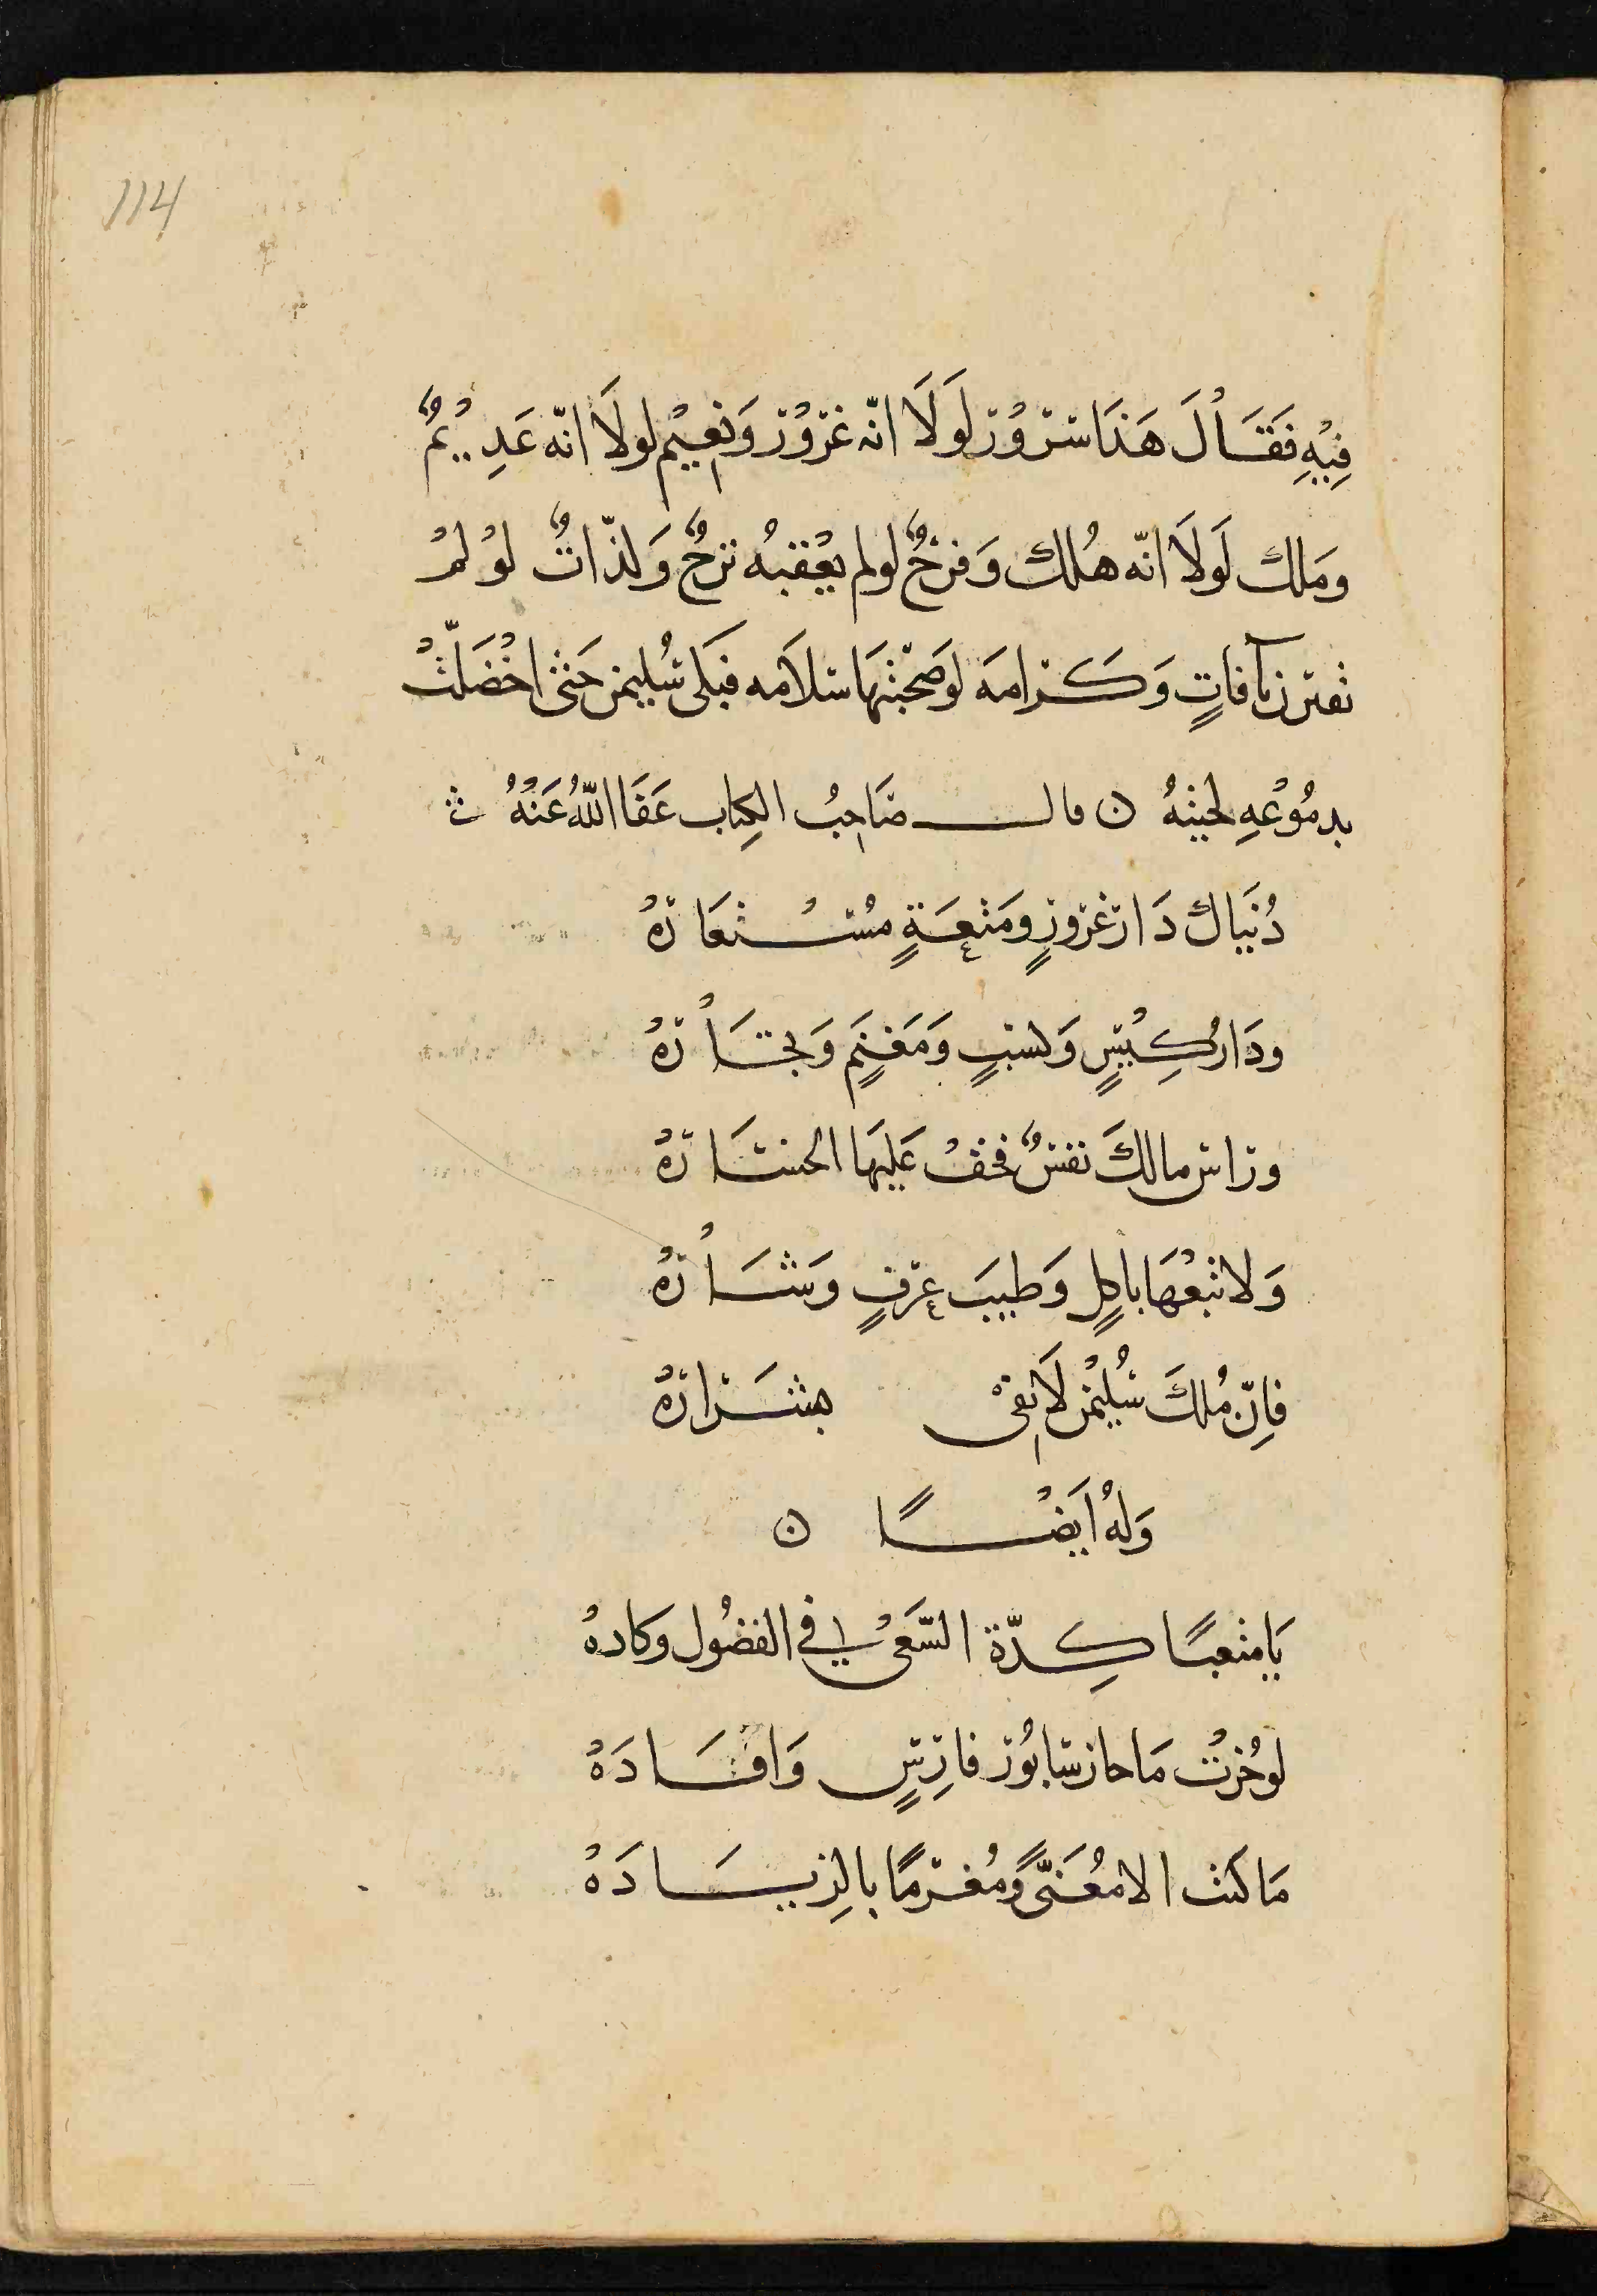 114
فِيْهِ فَقَالَ هَذَا سُرُوْرٌ لَوْلَا انّه غُرُوْرٌ وَنَعِيْم لولَا انّه عَدِيْمٌ
وَمَلك لَولَا انّه هُلك وَفرحٌ لولم يعْقبهُ ترحٌ وَلذّاتٌ لوْ لمْ
تقترن بآفاتٍ وَكَرامَه لو صَحِبْتهَا سَلامَه فبَكى سُليمن حَتى اخْضَلّتْ
بدمُوْعهِ لحيتهُ ن قال صَاحِبُ الكِتاب عَفَا اللّهُ عَنْهُ
دُنيَاك دَار غرورٍ ومَتعَةٍ مُسْتعَارهْ
ودَار كِبْسٍ وَكسْبٍ وَمَغنَمٍ وَتجَارهْ
وراس مالكَ نفسٌ فخفْ عَليهَا الخسَارهْ
وَلا تبْعْهَا باكلٍ وَطيبَ عرْفٍ وَشَارهْ
فاِنّ مُلكَ سُليْمن لَا يَفى بشَرارهْ
وَلهُ أيْضًا ن
يَا متعبًا كدّة السّعىُ في الفضُول وكادهْ
لو حُزت مَا حاز سَابُوْر فارِسٍ وَافَادَهْ
مَا كنت الا مُعَنّىً ومُغرَمًا بالِزيَادَهْ